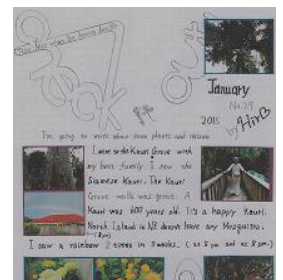 January
No.29
2015
by Hiro
I'm going to write about some plants and nature.
I went to the Kauri Grove with
my host family. I saw the
Siamese Kauri. The Kauri
Grove walk was great. A
Kauri was 600 years old. It's a happy Kauri.
North Island in NZ doesn't have any Mosquitos.
I saw a rainbow 2 times in 3 weeks. (at 5 pm and at 8 pm.)